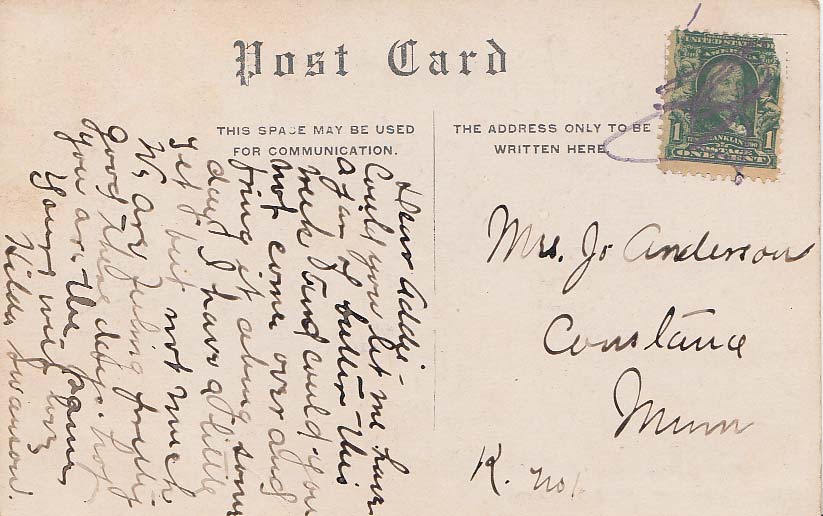 Post Card
THIS SPACE MAY BE USED
FOR COMMUNICATION.
THE ADDRESS ONLY TO BE
WRITTEN HERE.
UNITED STATES OF
1
FRANKLIN
1
ONE CENT
Mrs. Jo Anderson
Constance
Minn
R. No 1.
Dear Addie -
Could you let me have
a jar of butter this
week and could you
not come over and
bring it along some
day I have a little
yet but not much
We are feeling pretty
good these days. hop
you are the same,
Yours with love
Hilda Swanson.